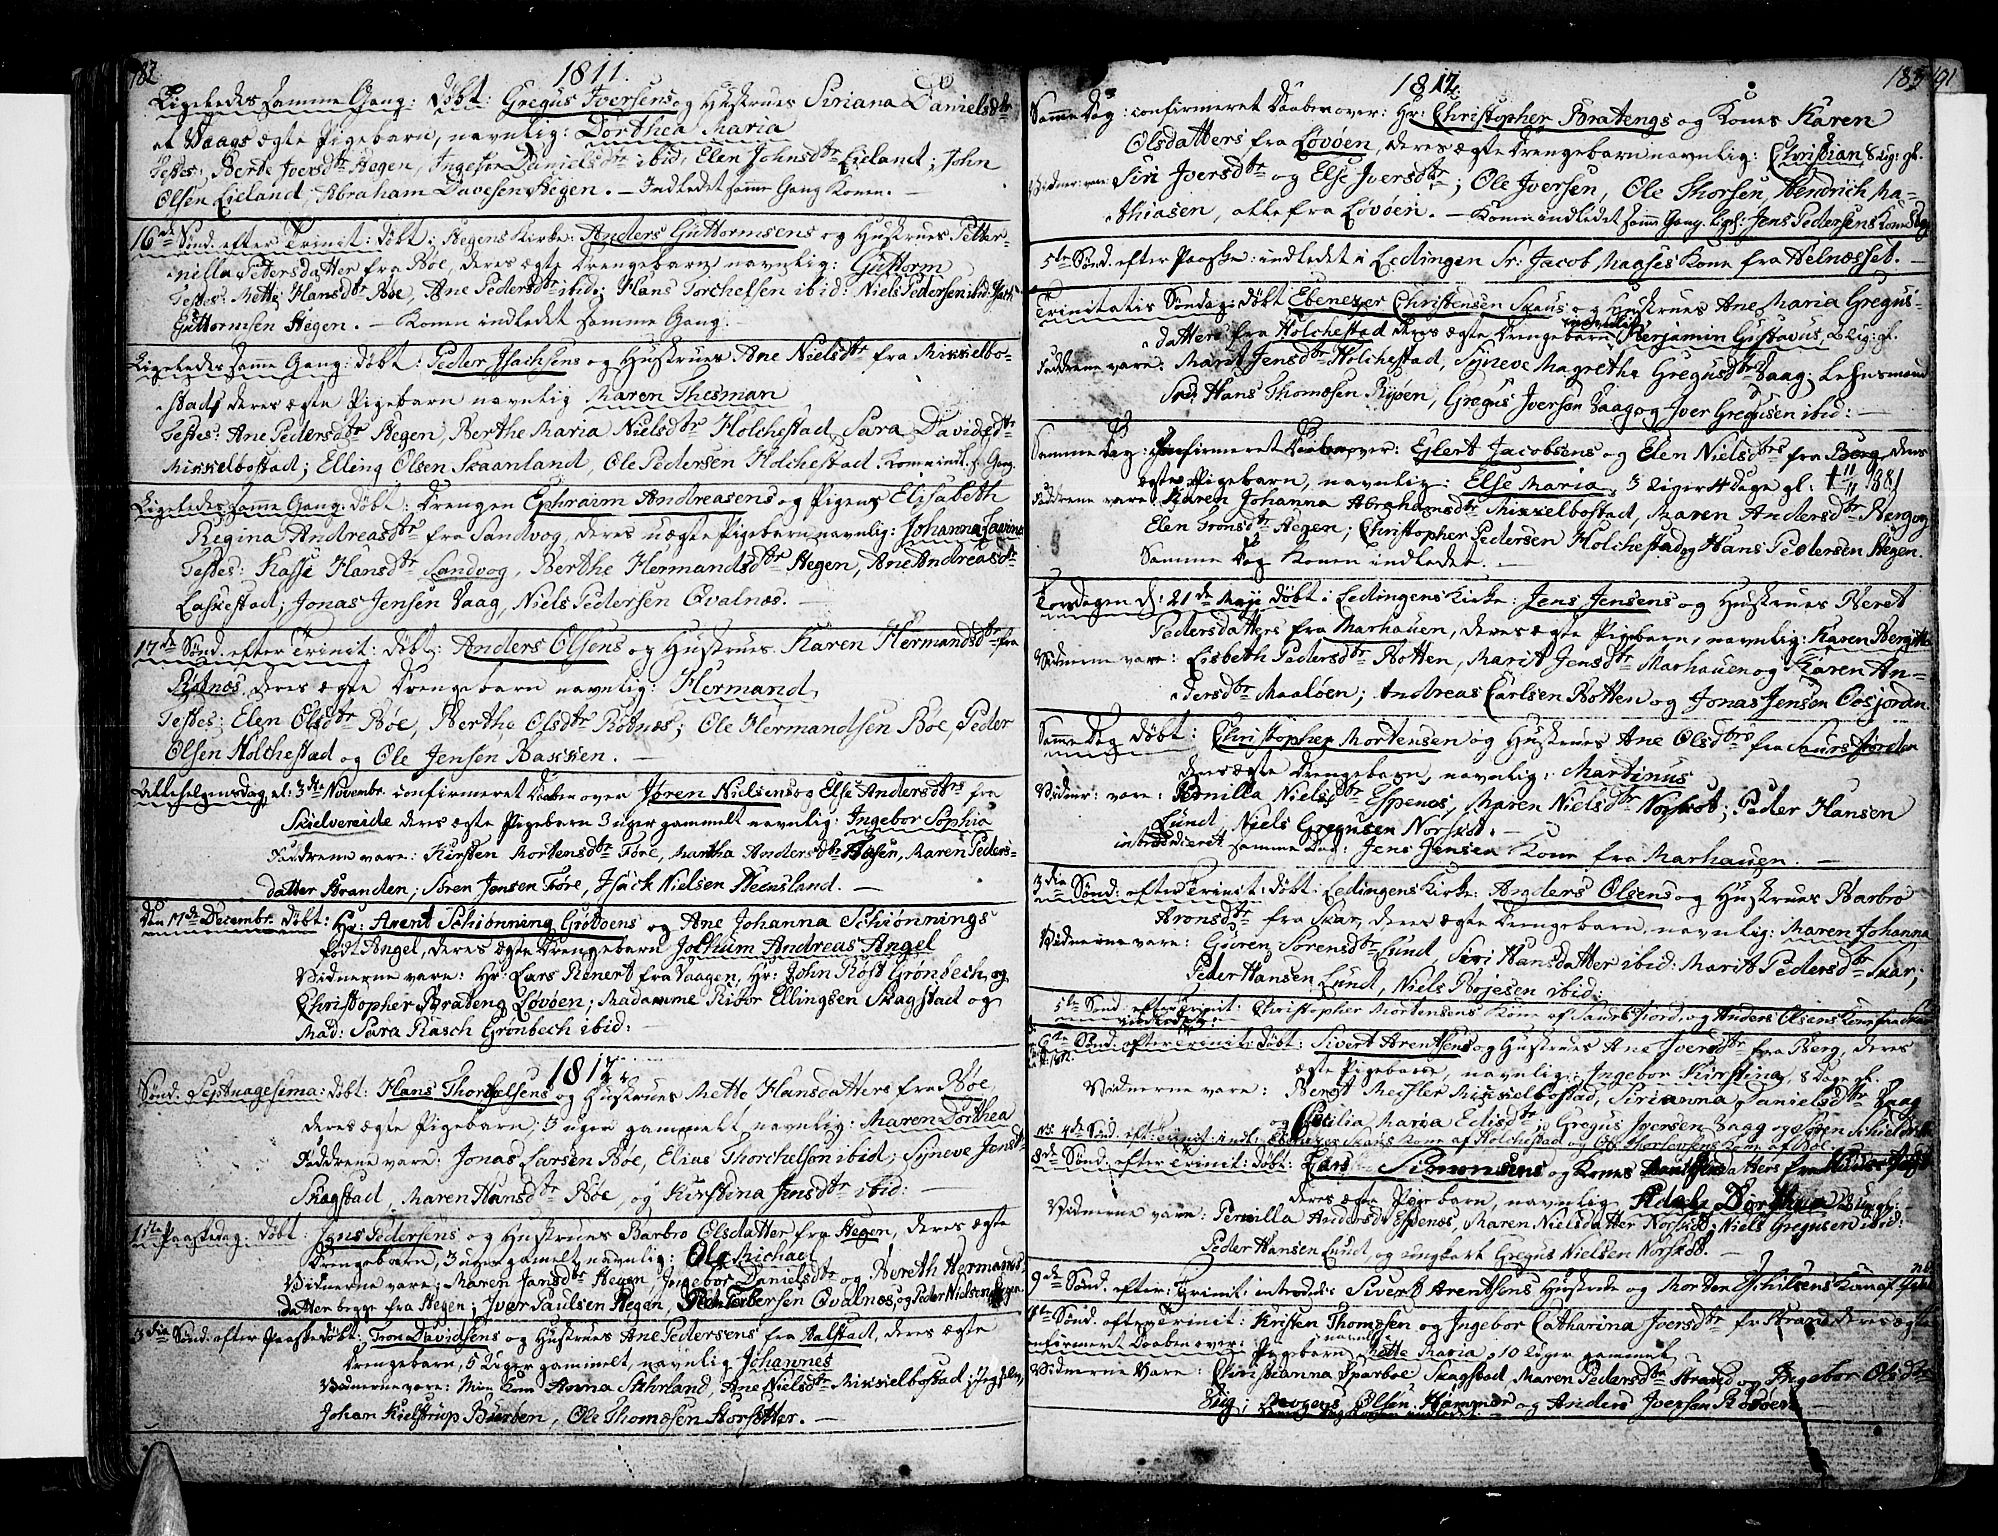 182
1811.
Ligeledes samme Gang: døbt: Gregus Iversens og Hustrues Siriana Danielsdtr
et Vaags ægte Pigebarn, navnlig: Dorthea Maria
Testes: Berte Iversdtr Hegen, Ingebor Danielsdtr ibid, Elen Johnsdtr Lieland; John
Olsen Lieland, Abraham Davesen Hegen. – Indledet samme Gang Konen. –
16de Sønd. efter Trinit: døbt i Hegens Kirke: Anders Guttormsens og Hustrues Petter-
nilla Petersdatter fra Bøe, deres ægte Drengebarn navnlig: Guttorm
Testes: Mette Hansdtr Bøe, Ane Pedersdtr ibid; Hans Torchelsen ibid: Niels Pedersen ibid
Guttormsen Hegen. – Konen indledet samme Gang.
Ligeledes samme Gang: døbt: Peder Isachsens og Hustrues Ane Nielsdtr fra Misselbo-
stad, deres ægte Pigebarn navnlig Maren Thesman
Testes: Ane Pedersdtr Hegen, Berthe Maria Nielsdtr Holchestad, Sara Davidsdtr
Misselbostad; Elling Olsen Skaanland, Ole Pedersen Holchestad. Konen indl. s. Gang
Ligeledes samme Gang: døbt: Drengen Ephraim Andreasens og Pigens Elisabeth
Regina Andreasdtr fra Sandvog, deres uægte Pigebarn navnlig: Johanna
Testes: Kasse Hansdtr Sandvog, Berthe Hermandsdtr Hegen, Ane Andreasdtr
Laskestad; Jonas Jensen Vaag, Niels Pedersen Qvalnæs. –
17de Sønd. efter Trinit: døbt: Anders Olsens og Hustrues Karen Hermandsdtr fra
Rotnæs, deres ægte Drengebarn navnlig: Hermand,
Testes: Elen Olsdtr Bøe, Berthe Olsdtr Rotnæs; Ole Hermandsen Bøe, Peder
Olsen Holchestad og Ole Jensen Bakken. –
Allehelgensdag, d: 3de Novembr. confirmeret Daaben over Jøren Nielsens og Else Andersdtrs fra
deres ægte Pigebarn 3 uger gammelt navnlig: Ingebor Sophia
Fadderne vare: Kirsten Mortensdtr Føre, Martha Andersdtr Aasen, Maren Peders-
datter Stranden; Sören Jensen Føre, Isack Nielsen Steensland. –
Den 17de Decembr. døbt: Hr: Arent Schiønning Grødøens og Ane Johanna Schiønnings
født Angel, deres ægte Drengebarn Jochum Andreas Angel
Vidnerne vare: Hr: Lars Rener fra Vaagen, Hr: John Røst Grønbech, og
Christopher Brateng Løvøen; Madamme Ribor Ellingsen Skagstad og
Mad: Sara Rasch Grønbech ibid: –
1812.
Sønd. Septuagesima: døbt: Hans Thorchelsens og Hustrues Mette Hansdatters fra Bøe,
deres ægte Pigebarn, 3 uger gammelt navnlig: Maren Dorthea
Fadderne vare: Jonas Larsen Bøe, Elias Thorchelsen ibid; Syneve Jensdtr
Skagstad, Maren Hansdtr Bøe, og Kirstina Jensdtr ibid: –
1ste Paaskedag: døbt: Jens Pedersens og Hustrues Barbro Olsdatter fra Hegen, deres ægte
Drengebarn, 3 uger gamelt navnlig: Ole Michael
Vidnerne vare: Maren Jansdtr Hegen, Ingebor Danielsdtr og Bereth Hermans-
datter begge fra Hegen; Iver Paulsen Hegen, Peder Torbersen Qvalnæs, og Peder Nielsen
3die Sønd. efter Paaske døbt: Tron Davidsens og Hustrues Ane Pedersens fra Halstad, deres ægte
Drengebarn, 5 Uger gammelt, navnlig Johannes
Vidnerne vare: Min Kone Anna Stehrland, Ane Nielsdtr Misselbostad; Jeg selv,
Johan Kielstrup Burben, Ole Thomæsen Storsetter. –
183
191
1812.
Samme Dag: confirmeret Daaben over: Hr: Christopher Bratengs og Kones Karen
Olsdatters fra Løvøen, deres ægte Drengebarn navnlig: Christian 8 Ug: gl.
Vidner vare: Siri Iversdtr og Else Iversdtr; Ole Iversen, Ole Thorsen, Hendrich Ma-
thiasen, alle fra Løvøen. – Konen indledet samme Gang. Ligs: Jens Pedersens Kone
5te Sønd. efter Paaske: indledet i Lødingen Sr: Jacob Maases Kone fra Helnæsset. –
Trinitatis Søndag: døbt Ebenezer Christensen Skaus og Hustrues Ane Maria Gregus-
datters fra Holchestad deres ægte Drengebarn navnlig Benjamin Gustavus, 2 Ug: gl.
Faddrene vare: Marit Jensdtr Holchestad, Syneve Magrethe Gregusdtr Vaag; Lehnsmand
Sr: Hans Thomæsen Rypøen, Gregus Iversen Vaag og Iver Gregusen ibid: –
Samme Dag: confirmeret Daaben over: Eylert Jacobsens og Elen Nielsdtrs fra Berg deres
ægte Pigebarn, navnlig: Else Maria, 3 Uger 4 dage gl: † 11/11 1881
Faddrene vare: Karen Johanna Abrahamsdtr Misselbostad, Maren Andersdtr Berg og
Elen Tronsdtr Hegen; Christopher Pedersen Holchestad og Hans Pedersen Hegen.
Samme Dag Konen indledet. –
Torsdagen d: 21de Maji døbt i Lødingens Kirke: Jens Jensens og Hustrues Beret
Pedersdatters fra Marhauen, deres ægte Pigebarn, navnlig: Karen
Vidnerne vare: Lisbeth Pedersdtr Botten, Marit Jensdtr Marhauen og Karen An-
dersdtr Maaløen; Andreas Carlsen Botten og Jonas Jensen Oosjorden.
Samme Dag døbt: Christopher Mortensen og Hustrues Ane Olsdtrs fra Saursfiorden
deres ægte Drengebarn, navnlig: Martinus
Vidner: vare: Pernilla Nielsdtr Espenes, Maren Nielsdtr Norskot; Peder Hansen
Lund, Niels Gregusen Norskot. –
introduceret samme Dag: Jens Jensen Kone fra Marhauen. –
3die Sønd: efter Trinit: døbt: i Lødingens Kirke: Anders Olsens og Hustrues Barbro
Aronsdtr fra Skar, deres ægte Drengebarn, navnlig: Maren Johanna
Vidnerne vare: Guren Sørensdtr Lund, Siri Hansdatter ibid: Marit Pedersdtr Skar;
Peder Hansen Lund, Niels Bojesen ibid:
5te Sønd. efter Trinit: Christopher Mortensens Kone af Saursfiord, og Anders Olsens Kone fra Skar
6te Sønd: efter Trinit: døbt: Sivert Arentsens og Hustrues Ane Iversdtr fra Berg, deres
ægte Pigebarn, navnlig: Ingebor Kirstina, 8 Dage gl.
Vidnerne vare: Berest Meisler Misselbostad, Sirianna Danielsdtr Vaag
og Cecilia Maria Edisdtr; Gregus Iversen Vaag og Søren
4de Sønd. eft: Trinit: indl: Skaus Kone af Holchestad og Kone af Bøe
8de Sønd: efter Trinit: døbt: Lars Simonsens og Kones
deres ægte Pigebarn, navnlig Adele Dorthea
Vidnerne vare: Pernilla Andersd Espenes, Maren Nielsdatter Norskot; Niels Gregusen ibid:
Peder Hansen Lund, og ungkarl Gregus Nielsen Norskot. –
9de Sønd: efter: Trinit: introd: Sivert Arentsens Hustrue og Morten Kone af
Sønd. efter Trinit: Kristen Thomæsen og Ingebor Catharina Iversdtr fr Strand deres ægte
confirmert Daaben over: Pigebarn, navnl: Mette Maria, 10 Uger gammelt
Vidnerne vare: Christianna Sparboe Skagstad, Maren Pedersdtr Strand og Ingebor Olsdtr
Olsen Hammer og Anders Iversen